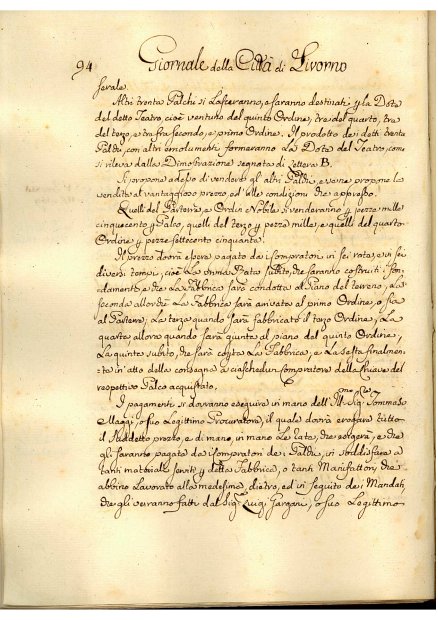 94 Giornale della Città di Livorno
serale.
Altri trenta Palchi si lasceranno, e saranno destinati p la Dote
del detto Teatro, cioè ventuno del quinto Ordine, tre del quarto, tre
del terzo, e tre fra secondo, e primo Ordine. Il prodotto dei detti trenta
Palchi, con altri emolumenti formeranno La Dote del Teatro, come
si rileva dalla Dimostrazione segnata di Lettera B.
Si propone adesso di vendere gli altri Palchi, e se ne propone la
vendita al vantaggioso prezzo, ed alle condizioni che appresso.
Quelli del Parterre, e Ordin Nobile si venderanno p pezze mille
cinquecento p Palco, quelli del terzo p pezze mille, e quelli del quarto
Ordine p pezze settecento cinquanta.
Il prezzo dovrà essere pagato dai Compratori in sei rate, e in sei
diversi tempi, cioè La prima Rata subito, che saranno costruiti i fon-
damenti, e che La Fabbrica sarà condotta al Piano del terreno, La
seconda allorchè La Fabbrica sarà arrivata al primo Ordine, o sia
al Parterre; La terza quando sarà fabbricato il terzo Ordine, La
quarta, allora quando sarà giunta al piano del quinto Ordine,
La quinta subito, che sarà coperta La Fabbrica, e La sesta finalmen-
te in atto della consegna a ciaschedun Compratore della Chiave del
respettivo Palco acquistato.
I pagamenti si dovranno eseguire in mano dell' Ill.mo Sig. Cav. Tommaso
Maggi, o suo Legittimo Procuratore, il quale dovrà erogare tutto
il suddetto prezzo, e di mano, in mano Le rate, che esigerà, e che
gli saranno pagate da Compratori dei Palchi, in soddisfare a
tanti materiali serviti p detta Fabbrica, o tanti Manifattori, che
abbino Lavorato alla medesima, dietro, ed in seguito dei Mandati,
che gli verranno fatti dal Sig. Luigi Gargani, o suo Legittimo